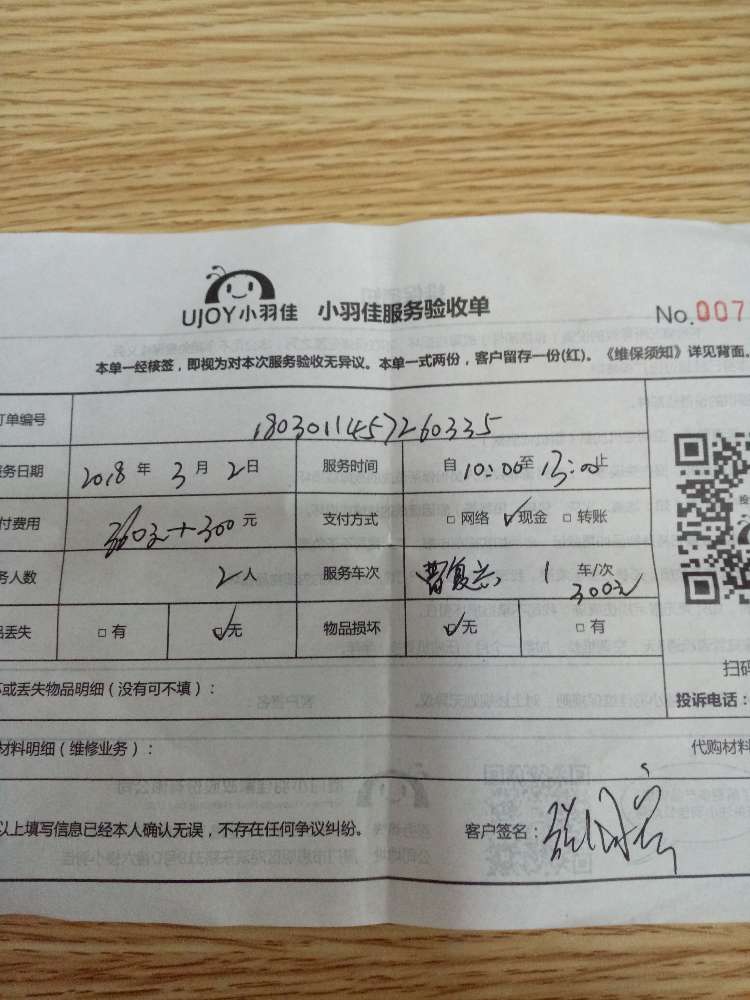 UJOY小羽佳 小羽佳服务验收单 No.007
本单一经核签，即视为对本次服务验收无异议。本单一式两份，客户留存一份(红)。《维保须知》详见背面。
订单编号 1803011457260335
服务日期 2018 年 3 月 2 日 服务时间 自 10:00 至 13:00 止
付费用 +300 元 支付方式 □ 网络 ☑ 现金 □ 转账
务人数 2 人 服务车次 曹复兴 1 车/次
300元
品丢失 □ 有 ☑ 无 物品损坏 ☑ 无 □ 有
扫码
坏或丢失物品明细（没有可不填）： 投诉电话：
材料明细（维修业务）： 代购材料
以上填写信息已经本人确认无误，不存在任何争议纠纷。 客户签名：